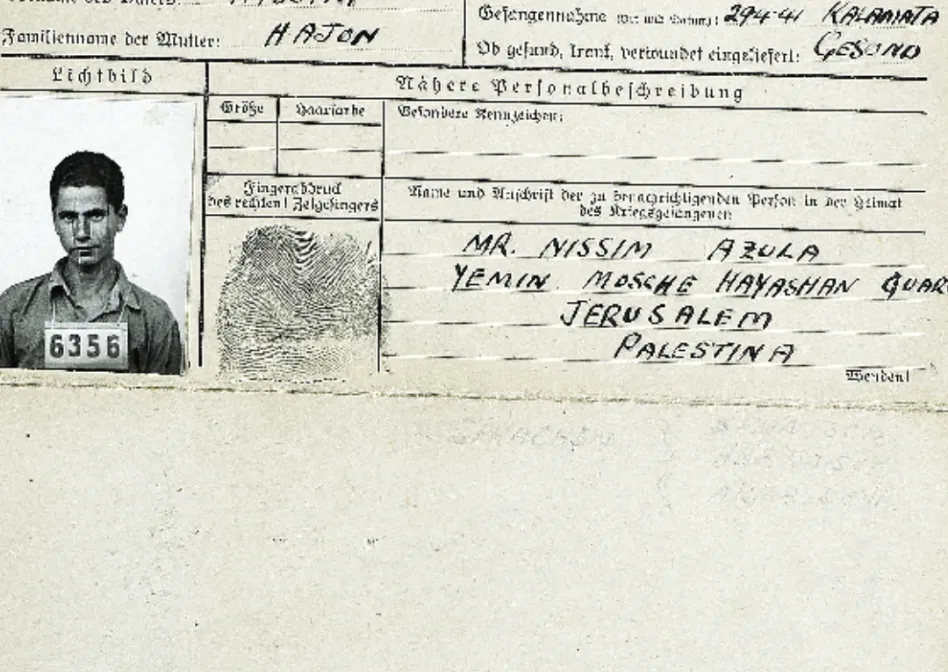 Gefangennahme (Ort und Datum): 29-4-41 KALAMATA
Familienname der Mutter: HAJON
Ob gesund, krank, verwundet eingeliefert: GESUND
Lichtbild
Nähere Personalbeschreibung
Größe
Haarfarbe
Besondere Kennzeichen:
Fingerabdruck
des rechten! Zeigefingers
Name und Anschrift der zu benachrichtigenden Person in der Heimat
des Kriegsgefangenen
MR. NISSIM AZULA
YEMIN MOSCHE HAYASHAN QUAR
JERUSALEM
PALESTINA
6356
Wenden!
SPRACHEN